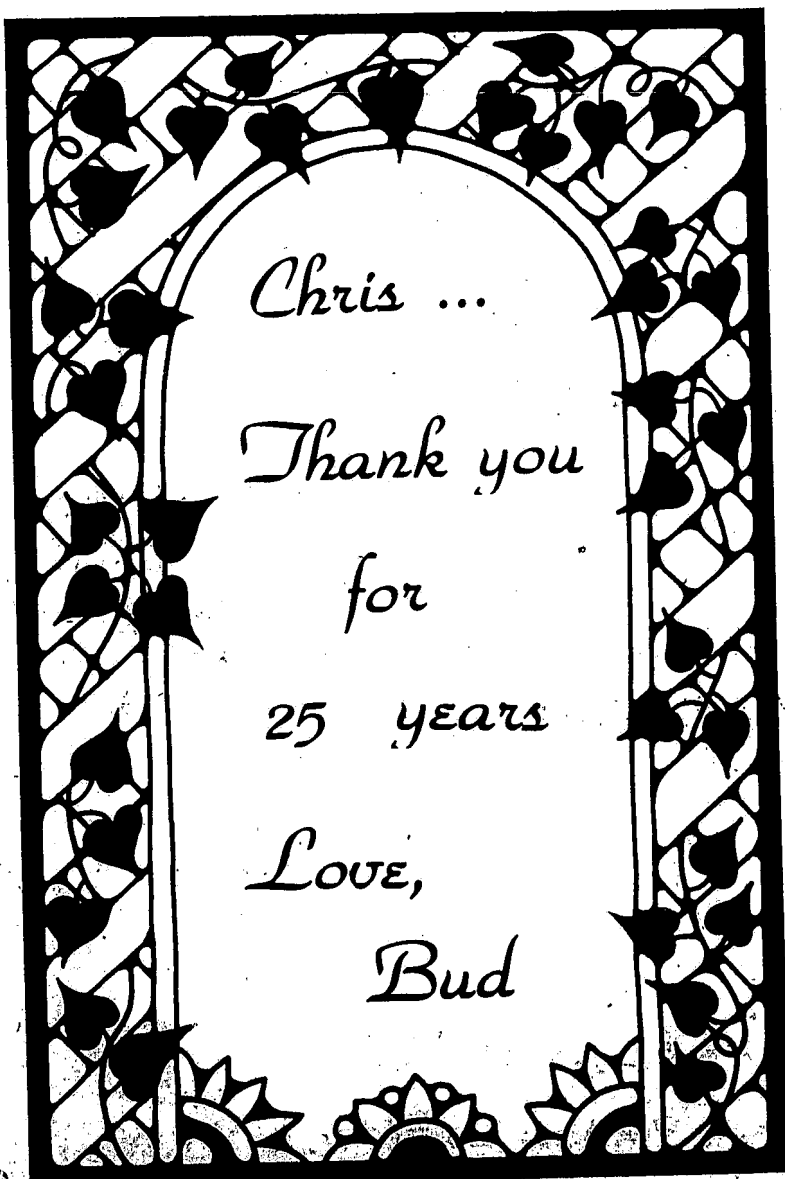 Chris ...
Thank you
for
25 years
Love,
Bud